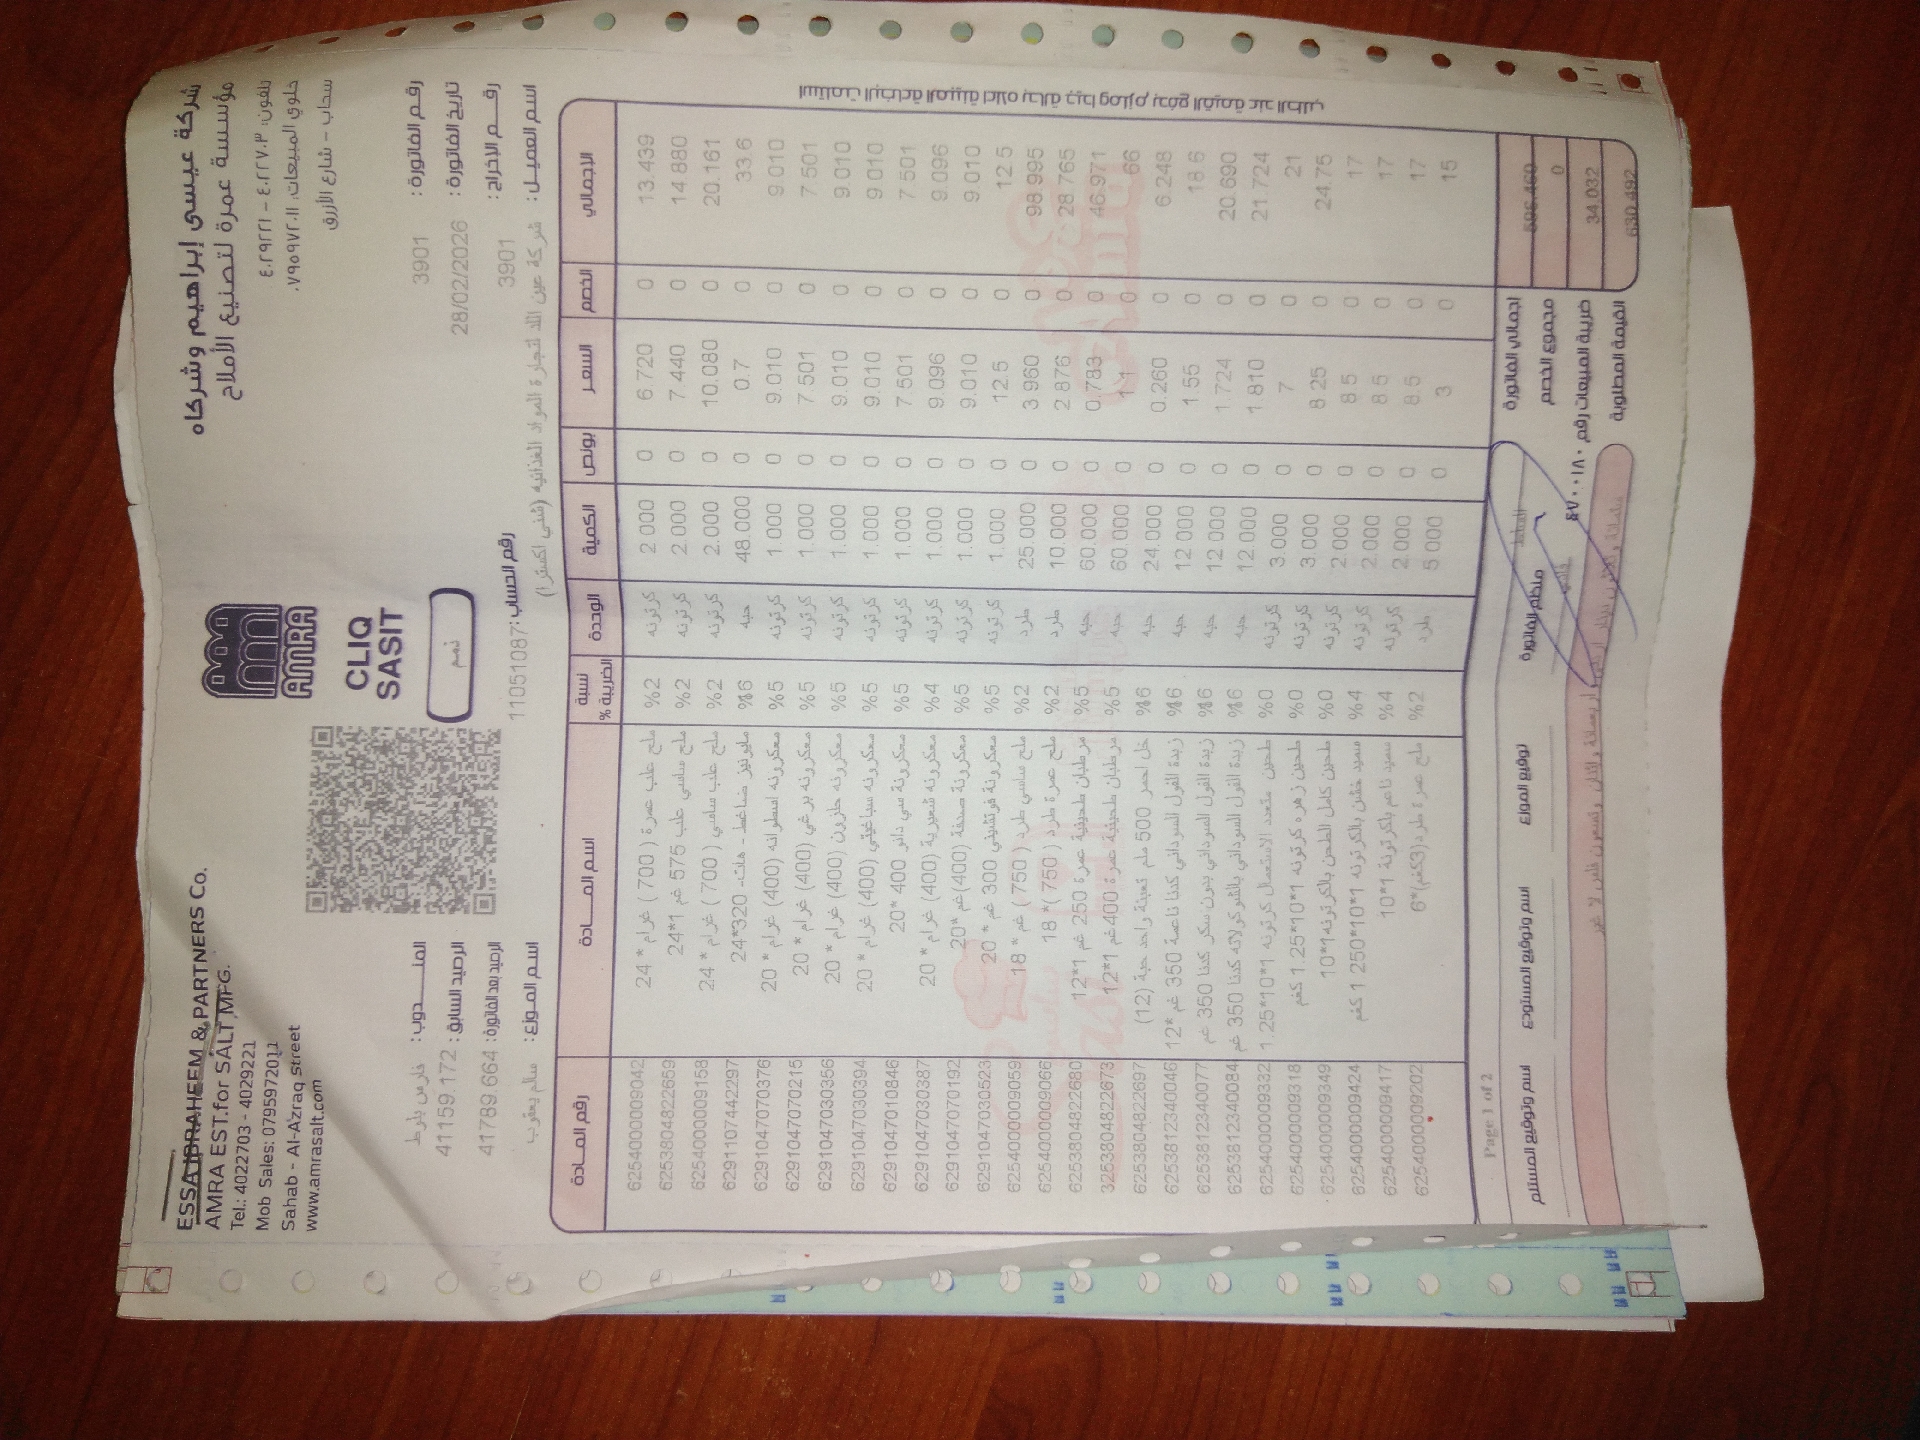 ESSA IBRAHEEM & PARTNERS Co.
AMRA EST.for SALT MFG.
Tel.: 4022703 - 4029221
Mob Sales: 0795972011
Sahab - Al-Azraq Street
www.amrasalt.com
AMRA
CLIQ
SASIT
ذمم
شركة عيسى إبراهيم وشركاه
مؤسسة عمرة لتصنيع الأملاح
تلفون: ٤٠٢٢٧٠٣ - ٤٠٢٩٢٢١
خلوي المبيعات: ٠٧٩٥٩٧٢٠١١
سحاب - شارع الأزرق
رقم الفاتورة: 3901
تاريخ الفاتورة: 28/02/2026
رقم الاخراج: 3901
اسم العميل: شركة عين اللد لتجارة المواد الغذائيه
رقم الحساب: 11051087
المندوب: فارس بلوط
الرصيد السابق: 41159.172
الرصيد بعد الفاتورة: 41789.664
اسم الموزع: سالم يعقوب
رقم المادة اسم المادة نسبة الضريبة % الوحدة الكمية بونص السعر الخصم الإجمالي
6254000009042 ملح علب عمرة ( 700 ) غرام * 24 %2 كرتونه 2.000 0 6.720 0 13.439
6253804822659 ملح ماسي علب 575 غم 1*24 %2 كرتونه 2.000 0 7.440 0 14.880
6254000009158 ملح علب سافني ( 700 ) غرام * 24 %2 كرتونه 2.000 0 10.080 0 20.161
6291107442297 مايونيز ضاغط - هلات- 320*24 %16 حبه 48.000 0 0.7 0 33.6
6291047070376 معكرونه اسطوانه (400) غرام * 20 %5 كرتونه 1.000 0 9.010 0 9.010
6291047070215 معكرونه برغي (400) غرام * 20 %5 كرتونه 1.000 0 7.501 0 7.501
6291047030366 معكرونه حلزون (400) غرام * 20 %5 كرتونه 1.000 0 9.010 0 9.010
6291047030394 معكرونه سباغيتي (400) غرام * 20 %5 كرتونه 1.000 0 9.010 0 9.010
6291047010846 معكرونة سي دانو 400 *20 %5 كرتونه 1.000 0 7.501 0 7.501
6291047030387 معكرونه شعيرية (400) غرام * 20 %4 كرتونه 1.000 0 9.096 0 9.096
6291047070192 معكرونة صدفة (400)غم *20 %5 كرتونه 1.000 0 9.010 0 9.010
6291047030523 معكرونة فوتشيني 300 غم * 20 %5 كرتونه 1.000 0 12.5 0 12.5
6254000009059 ملح ماسي طرد ( 750 ) غم * 18 %2 طرد 25.000 0 3.960 0 98.995
6254000009066 ملح عمرة طرد ( 750)* 18 %2 طرد 10.000 0 2.876 0 28.765
6253804822680 مرطبان طحينية عمرة 250 غم 1*12 %5 حبه 60.000 0 0.783 0 46.971
3253804822673 مرطبان طحينيه عمره 400 غم 1*12 %5 حبه 60.000 0 1.1 0 66
6253804822697 خل احمر 500 ملم تعبئة واحد حبة (12) %16 حبه 24.000 0 0.260 0 6.248
6253812340046 زبدة الفول السوداني كندا ناعمة 350 غم *12 %16 حبه 12.000 0 1.55 0 18.6
6253812340077 زبدة الفول السوداني بدون سكر كندا 350 غم %16 حبه 12.000 0 1.724 0 20.690
6253812340084 زبدة الفول السوداني بالشوكولاته كندا 350 غم %16 حبه 12.000 0 1.810 0 21.724
6254000009332 طحين متعدد الاستعمال كرتونه 1*10*1.25 %0 كرتونه 3.000 0 7 0 21
6254000009318 طحين زهره كرتونه 1*10*1.25 كغم %0 كرتونه 3.000 0 8.25 0 24.75
6254000009349 طحين كامل الطحن بالكرتونه 1*10 %0 كرتونه 2.000 0 8.5 0 17
6254000009424 سميد خشن بالكرتونه 1*10*1.250 كغم %4 كرتونه 2.000 0 8.5 0 17
6254000009417 سميد ناعم بلكرتونة 1*10 %4 كرتونه 2.000 0 8.5 0 17
6254000009202 ملح عمرة طرد(3كغم)*6 %2 طرد 5.000 0 3 0 15
استلمت البضاعة المبينة اعلاه بحالة جيدة وملزم بدفع القيمة عند الطلب
Page 1 of 2
اجمالي الفاتورة 596.460
مجموع الخصم 0
ضريبة المبيعات رقم ٤٧٠٠١٨٠ 34.032
القيمة المطلوبة 630.492
اسم وتوقيع المستلم
اسم وتوقيع المستودع
توقيع الموزع
منظم الفاتورة